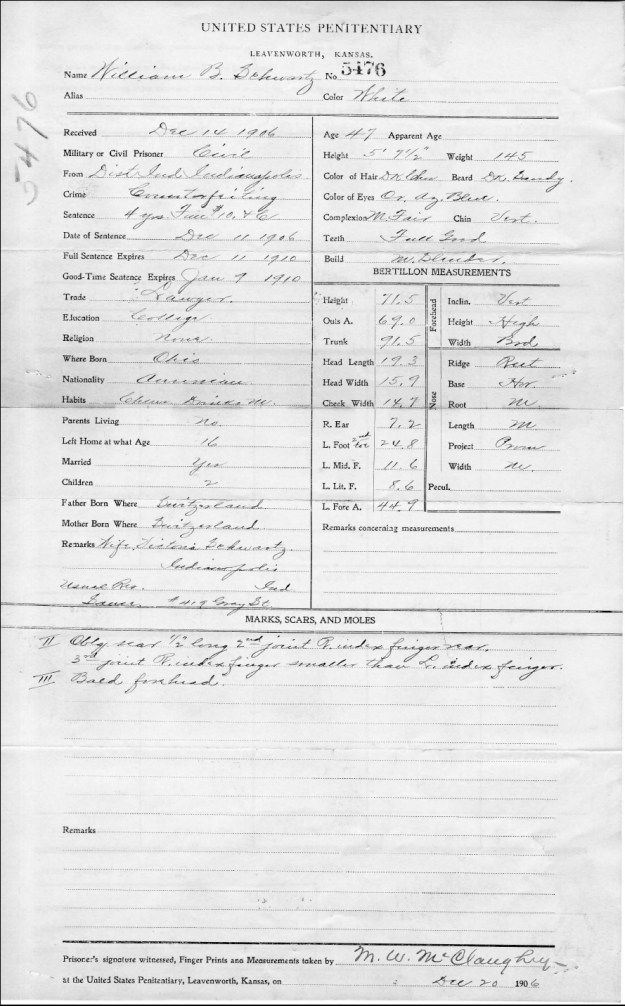 UNITED STATES PENITENTIARY
LEAVENWORTH, KANSAS.
Name William B. Schwartz No. 5476
Alias Color White
5476
Received Dec 14 1906
Military or Civil Prisoner Civil
From Dist. Ind. Indianapolis
Crime Counterfeiting
Sentence 4 yrs Fine $10. & C
Date of Sentence Dec 11 1906
Full Sentence Expires Dec 11 1910
Good-Time Sentence Expires Jan 9 1910
Trade Lawyer.
Education College
Religion None
Where Born Ohio
Nationality American
Habits Chews Drinks M.
Parents Living No
Left Home at what Age 16
Married Yes
Children 2
Father Born Where Switzerland
Mother Born Where Switzerland
Remarks Wife Victoria Schwartz
Indianapolis
Usual Res. Ind.
Same # 419 Gray St.
Age 47 Apparent Age
Height 5' 7½" Weight 145
Color of Hair DK. Beard DK. Sandy
Color of Eyes Or. dg. Blue.
Complexion M. Fair Chin Vert.
Teeth Full Good
Build M. Slender.
BERTILLON MEASUREMENTS
Height 71.5
Outs A. 69.0
Trunk 91.5
Head Length 19.3
Head Width 15.9
Cheek Width 14.7
R. Ear 7.2
L. Foot 24.8
L. Mid. F. 11.6
L. Lit. F. 8.6
L. Fore A. 44.9
Forehead
Inclin. Vert
Height High
Width Brd
Nose
Ridge Rect
Base Hor.
Root M.
Length M.
Project Prom
Width M.
Pecul.
Remarks concerning measurements
MARKS, SCARS, AND MOLES
II Oblq scar ½" long 2nd joint R. index finger rear.
3rd joint R. index finger smaller than L. index finger.
III Bald forehead.
Remarks
Prisoner's signature witnessed, Finger Prints and Measurements taken by M. W. McClaughry
at the United States Penitentiary, Leavenworth, Kansas, on Dec 20 1906